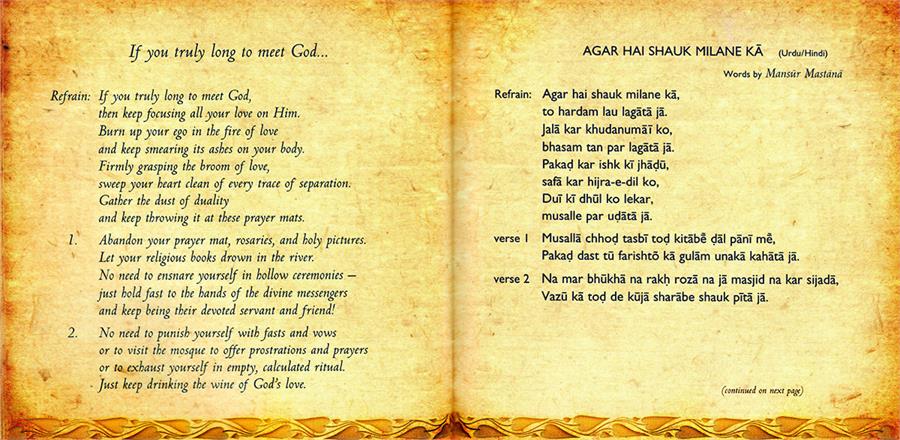 If you truly long to meet God...
Refrain: If you truly long to meet God,
then keep focusing all your love on Him.
Burn up your ego in the fire of love
and keep smearing its ashes on your body.
Firmly grasping the broom of love,
sweep your heart clean of every trace of separation.
Gather the dust of duality
and keep throwing it at these prayer mats.
1. Abandon your prayer mat, rosaries, and holy pictures.
Let your religious books drown in the river.
No need to ensnare yourself in hollow ceremonies –
just hold fast to the hands of the divine messengers
and keep being their devoted servant and friend!
2. No need to punish yourself with fasts and vows
or to visit the mosque to offer prostrations and prayers
or to exhaust yourself in empty, calculated ritual.
Just keep drinking the wine of God's love.
AGAR HAI SHAUK MILANE KĀ (Urdu/Hindi)
Words by Mansūr Mastānā
Refrain: Agar hai shauk milane kā,
to hardam lau lagātā jā.
Jalā kar khudanumāī ko,
bhasam tan par lagātā jā.
Pakaḍ kar ishk kī jhāḍū,
safā kar hijra-e-dil ko,
Duī kī dhūl ko lekar,
musalle par uḍātā jā.
verse 1 Musallā chhoḍ tasbī toḍ kitābẽ ḍāl pānī mẽ,
Pakaḍ dast tū farishtõ kā gulām unakā kahātā jā.
verse 2 Na mar bhūkhā na rakḥ rozā na jā masjid na kar sijadā,
Vazū kā toḍ de kūjā sharābe shauk pītā jā.
(continued on next page)